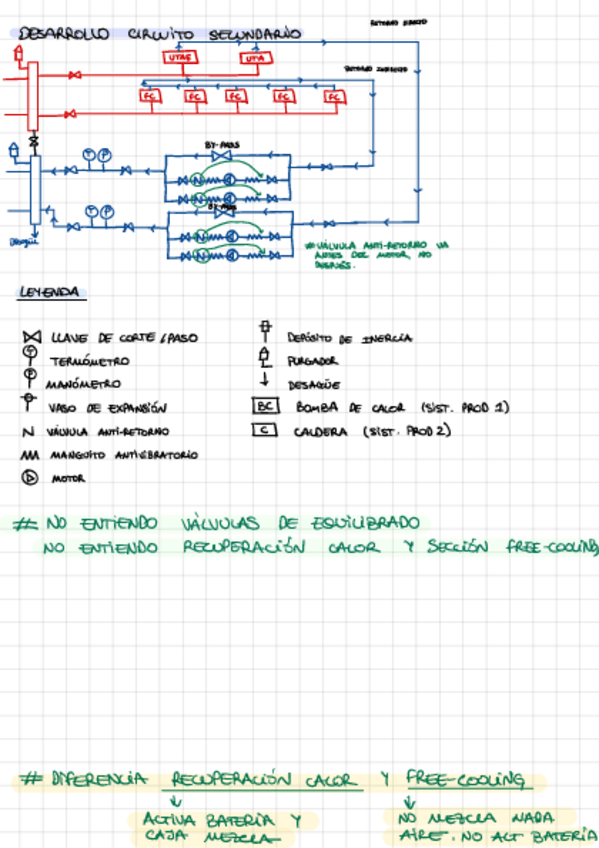 DESARROLLO CIRCUITO SECUNDARIO
RETORNO DIRECTO
UTAE
UTA
RETORNO INVERTIDO
FC FC FC FC FC
BY-PASS
T P
BY-PASS
T P
DESAGÜE
# VÁLVULA ANTI-RETORNO VA
ANTES DEL MOTOR, NO
DESPUÉS.
LEYENDA
LLAVE DE CORTE / PASO
TERMÓMETRO
MANÓMETRO
VASO DE EXPANSIÓN
N VÁLVULA ANTI-RETORNO
MANGUITO ANTIVIBRATORIO
MOTOR
DEPÓSITO DE INERCIA
PURGADOR
DESAGÜE
BC BOMBA DE CALOR (SIST. PROD 1)
C CALDERA (SIST. PROD 2)
# NO ENTIENDO VÁLVULAS DE EQUILIBRADO
NO ENTIENDO RECUPERACIÓN CALOR Y SECCIÓN FREE-COOLING
# DIFERENCIA RECUPERACIÓN CALOR Y FREE-COOLING
ACTIVA BATERIA Y
CAJA MEZCLA
NO MEZCLA NADA
AIRE. NO ACT BATERÍA